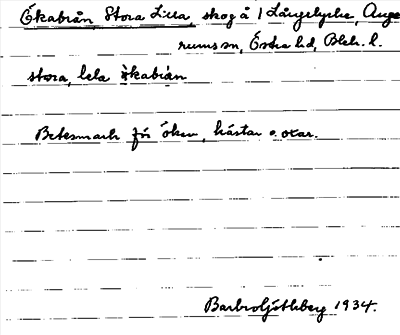 Ökabiån, Stora, Lilla, skog å 1 Långelycke, Auge
rums sn, Östra hd, Blek. l.
stora, lela ökabian
Betesmark för öken, hästar o. oxar.
Barbro Ljétleberg 1934.